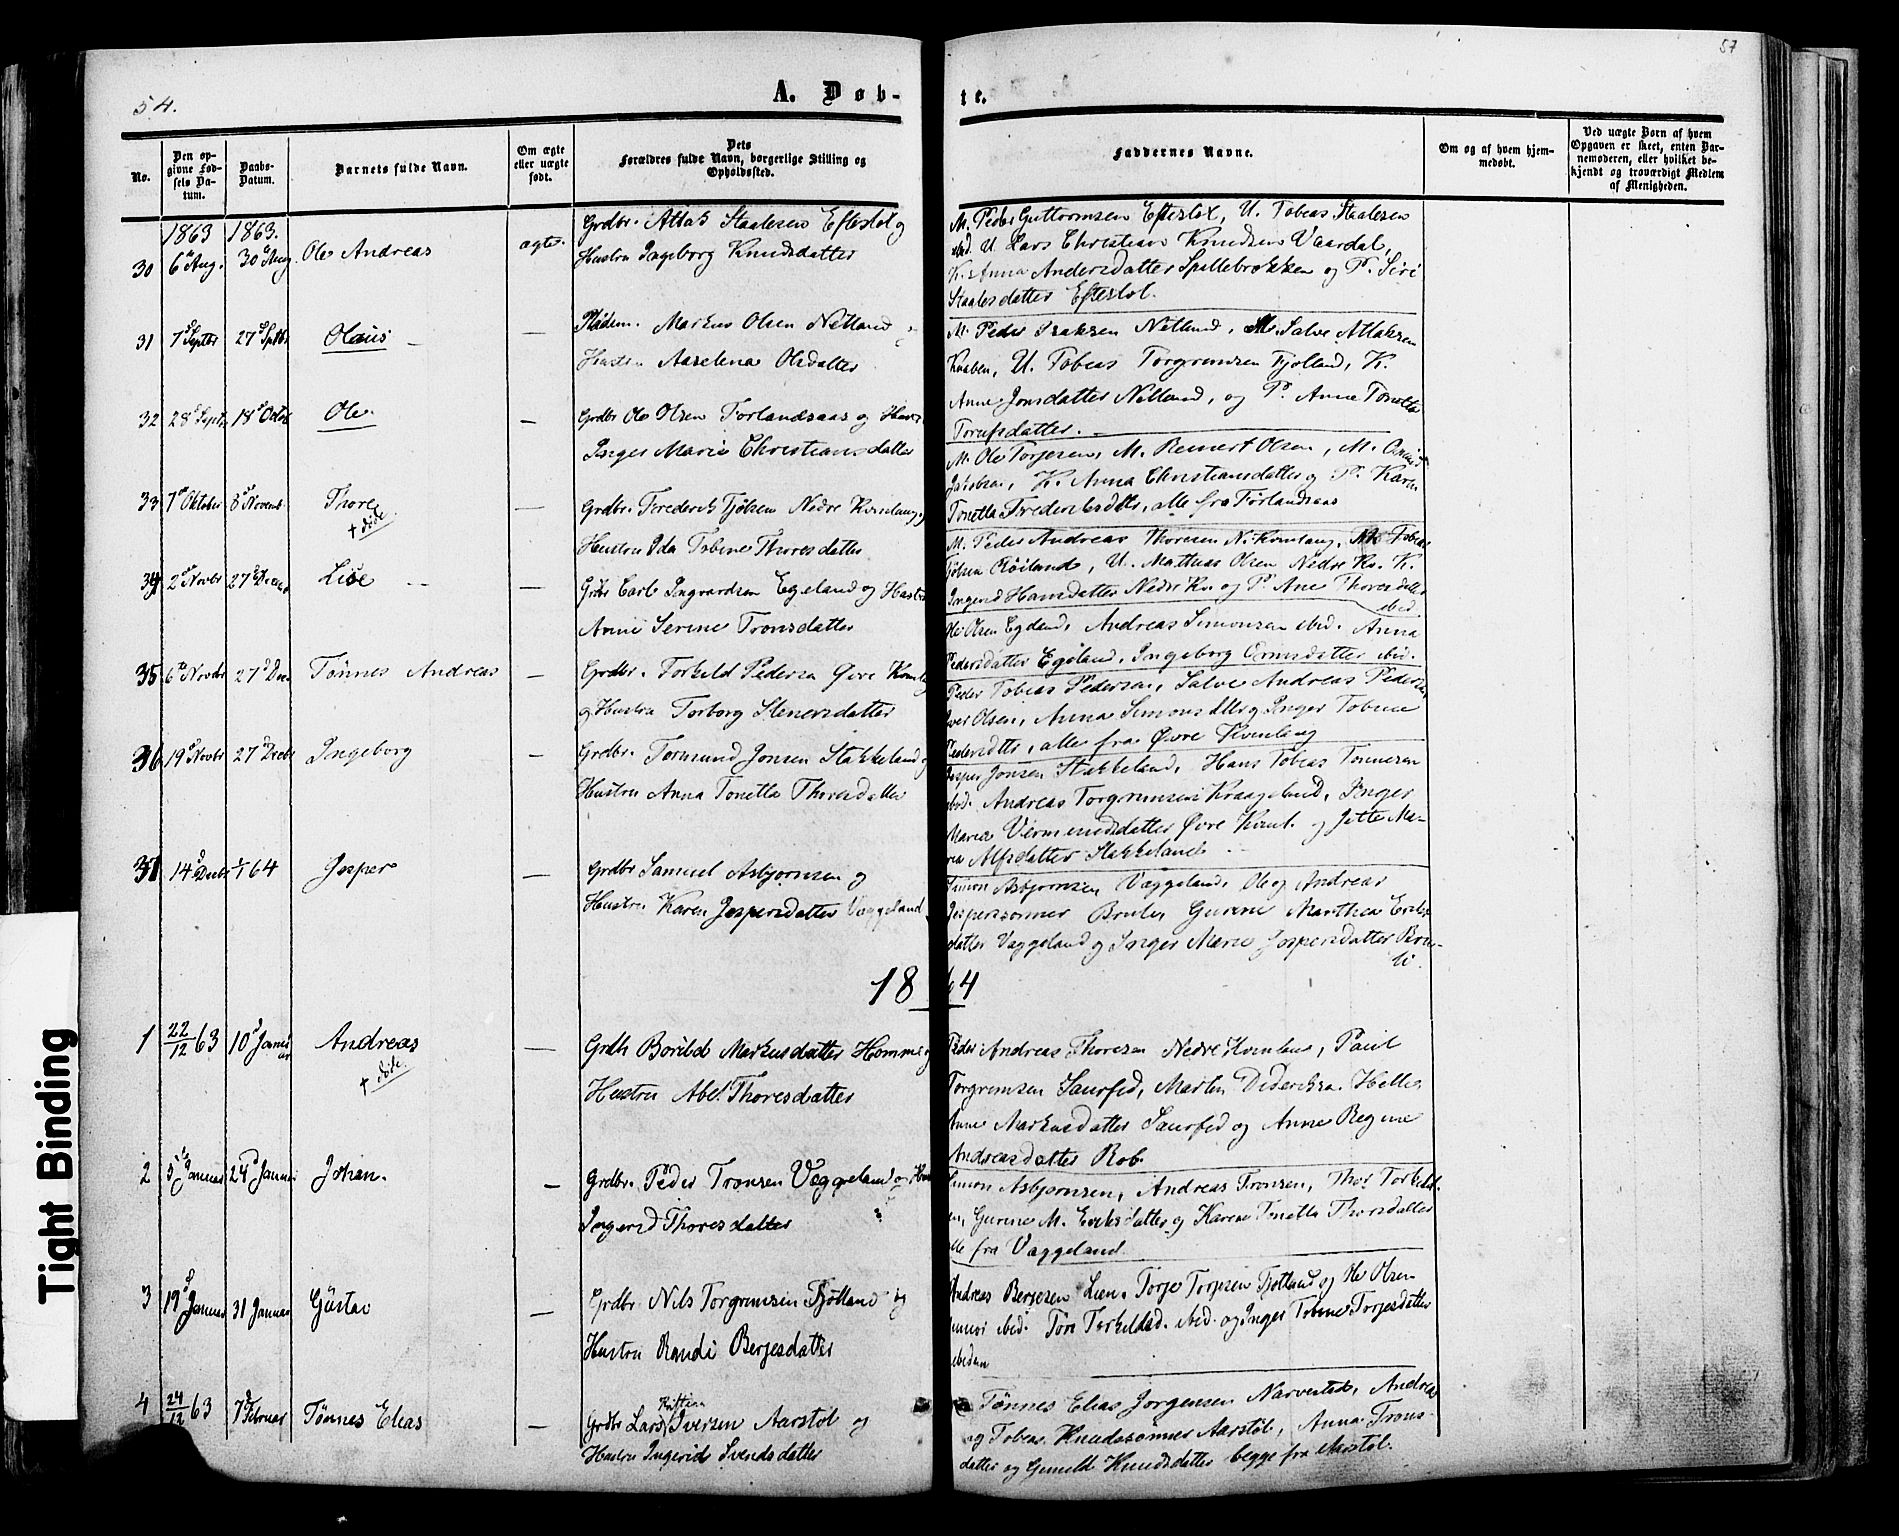 54.
A. Døb-
te.
57
No.
Den op-
givne Fød-
sels Da-
tum.
Daabs-
Datum.
Barnets fulde Navn.
Om ægte
eller uægte
født.
Dets
Forældres fulde Navn, borgerlige Stilling og
Opholdssted.
Faddernes Navne.
Om og af hvem hjem-
medøbt.
Ved uægte Børn af hvem
Opgaven er skeet, enten Bar-
nemoderen, eller hvilket be-
kjendt og troværdigt Medlem
af Menigheden.
1863 1863.
30 6 Aug. 30 Aug. Ole Andreas ægte.
Grdbr. Atlak Staalesen Eftestøl og
Hustru Ingeborg Knudsdatter
M. Peder Guttormsen Eftestøl, U. Tobias Staalesen
ibd. U. Lars Christian Knudsen Vaardal,
K. Anna Andersdatter Spillebrokken og P. Siri
Staalesdatter Eftestøl.
31 7 Septbr 27 Septbr Olaus —
Markus Olsen Netland
Hustru Aaselena Olsdatter
M. Peder Isaksen Netland, M. Salve Atlaksen
Knaben, U. Tobias Torgrimsen Fjotland, K.
Anne Jonsdatter Netland, og P. Anne Tonetta
32 28 Septr 18 Octob Ole. —
Grdbr Ole Olsen Forlandsaas og Hustr
Inger Marie Christiansdatter
M. Ole Torjesen, M. Reinert Olsen, M.
K. Anna Christiansdatter og P. Karen
Tonetta Frederiksdtr, alle fra Forlandsaas
33 7 Oktober 8 Novemb. Thore † døde —
Grdbr. Frederik Tjølsen Nedre Kvinlaug og
Hustru Ida Tobine Thoresdatter
M. Peder Andreas Thoresen N. Kvinlaug, M. Tobias
Tjølsen Røiland, U. Mathias Olsen Nedre Kv. K.
Ingerid Hansdatter Nedre Kv. og P. Ane Thoresdatter
ibid
34 2 Novbr 27 Decemb Lise —
Grdbr Carl Ingvardsen Egeland og Hustru
Anne Serine Tronsdatter
Ole Olsen Egeland, Andreas Simonsen ibid. Anna
Pedersdatter Egeland, Ingeborg Omundsdatter ibid.
35 6 Novbr 27 Dec. Tønnes Andreas —
Grdbr. Torkeld Pedersen Øvre Kvinlog
og Hustru Torborg Stenersdatter
Peder Tobias Pedersen, Salve Andreas Pedersen
Iver Olsen, Anna Simonsdtr og Inger Tobine
Pedersdtr, alle fra Øvre Kvinlog
36 19 Novbr 27 Decbr Ingeborg —
Grdbr. Tormund Jonsen Stakkeland og
Hustru Anna Tonetta Thoresdatter
Jesper Jonsen Stakkeland, Hans Tobias Tønnesen
ibid. Andreas Torgrimsen Kraageland, Inger
Maria Vermundsdatter Øvre Kvinl. og Jette Ma-
ria Alfsdatter Stakkeland
37 14 Decbr 1/1 64 Jesper —
Grdbr Samuel Asbjørnsen og
Hustru Karen Jespersdatter Væggeland
Simon Asbjørnsen Væggeland, Ole og Andreas
Jesperssønner Bruli, Gurine Marthea Eriks-
datter Væggeland og Inger Marie Jespersdatter Bru-
li.
1864
1 22/12 63 10 Januar Andreas † døde. —
Grdbr Borild Markusdatter Homme og
Hustru Abel Thoresdatter
Peder Andreas Thoresen Nedre Kvinlaug, Paul
Torgrimsen Saurfed, Martin Dideriksen Helle
Anne Markusdatter Saurfed og Anne Regine
Andreasdatter Rob.
2 5 Januar 24 Januar Johan. —
Grdbr. Peder Tronsen Væggeland og Hus
Ingerid Thoresdatter
Simon Asbjørnsen, Andreas Tronsen, Thor Torkild-
sen, Gurine M. Eriksdatter og Karen Tonetta Thorsdatter
alle fra Væggeland.
3 19 Januar 31 Januar Gustav —
Grdbr. Nils Torgrimsen Fjotland og
Hustru Randi Berjesdatter
Andreas Berjesen Lien, Torje Torjesen Fjotland og Ole Olsen
junior ibid. Tore Torkelsd. ibid. og Inger Tobine Torjesdatter
ibidem
4 24/12 63 7 Februar Tønnes Elias —
Kristian
Grdbr Lars Iversen Aarstøl og
Hustru Ingerid Svendsdatter
Tønnes Elias Jørgensen Narvestad, Andreas
og Tobias Knudssønner Aarstøl, Anna Trons-
datter og Gunild Knudsdatter begge fra Aarstøl.
Tight Binding